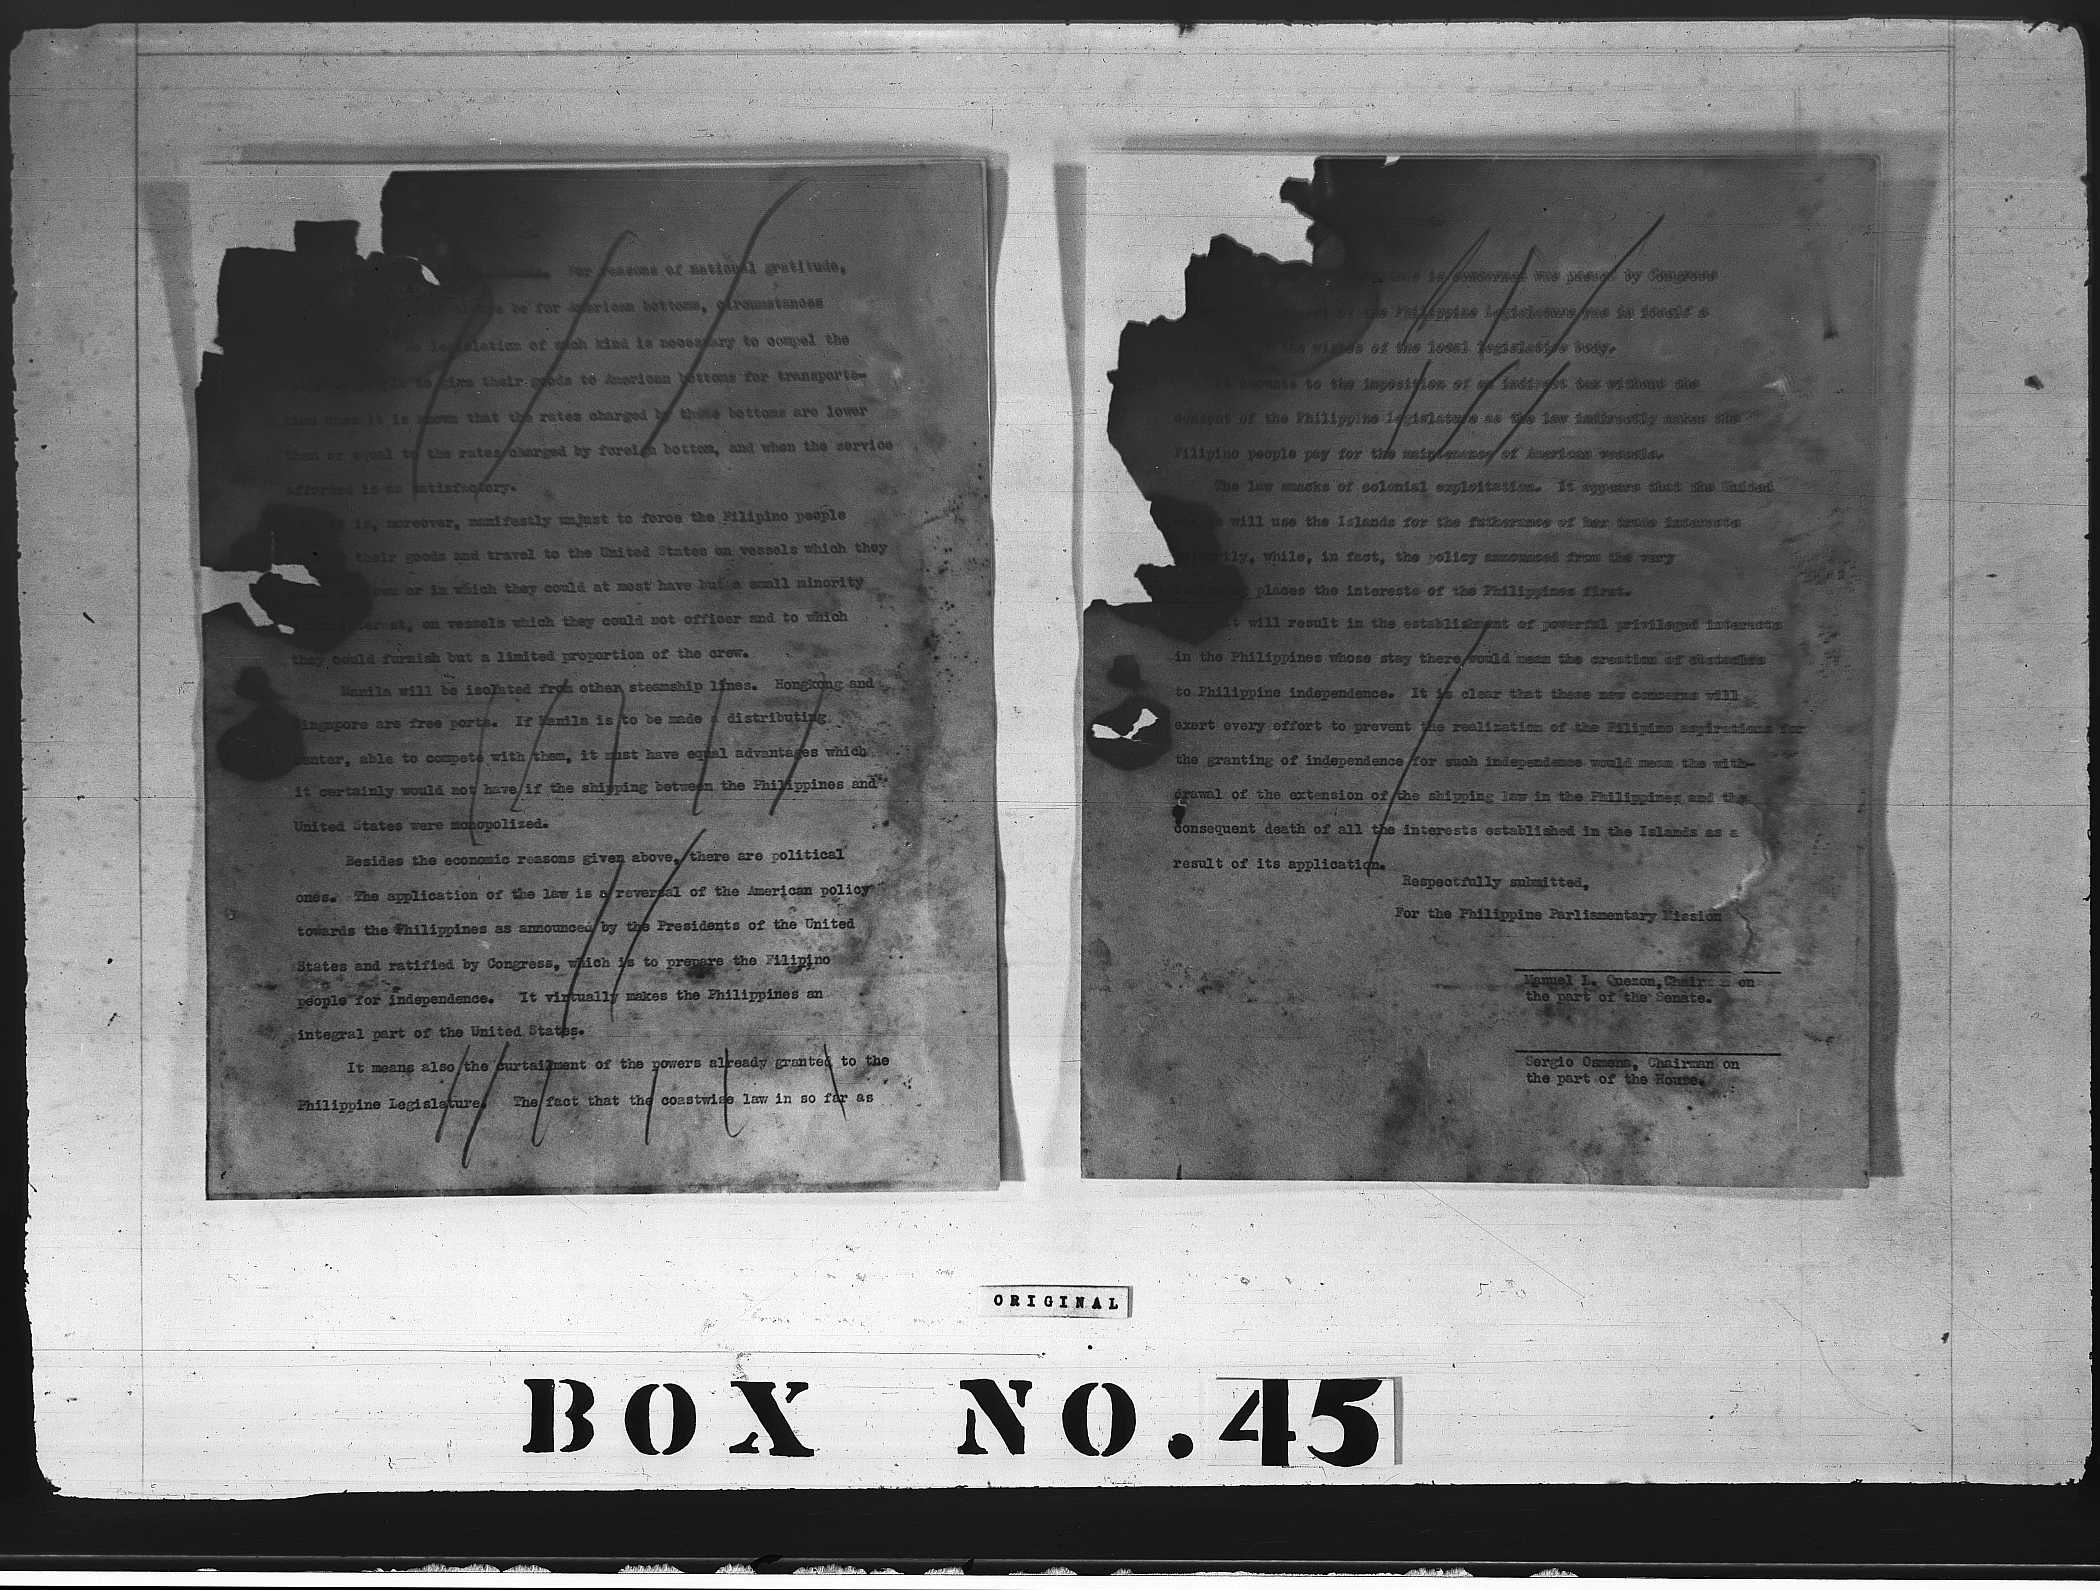 For reasons of national gratitude,
be for American bottoms, circumstances
legislation of such kind is necessary to compel the
to give their goods to American bottoms for transporta-
tion when it is known that the rates charged by these bottoms are lower
than or equal to the rates charged by foreign bottom, and when the service
afforded is as satisfactory.
is, moreover, manifestly unjust to force the Filipino people
their goods and travel to the United States on vessels which they
own or in which they could at most have but a small minority
interest, on vessels which they could not officer and to which
they could furnish but a limited proportion of the crew.
Manila will be isolated from other steamship lines. Hongkong and
Singapore are free ports. If Manila is to be made a distributing
center, able to compete with them, it must have equal advantages which
it certainly would not have if the shipping between the Philippines and
United States were monopolized.
Besides the economic reasons given above, there are political
ones. The application of the law is a reversal of the American policy
towards the Philippines as announced by the Presidents of the United
States and ratified by Congress, which is to prepare the Filipino
people for independence. It virtually makes the Philippines an
integral part of the United States.
It means also the curtailment of the powers already granted to the
Philippine Legislature. The fact that the coastwise law in so far as
is concerned was passed by Congress
the Philippine Legislature was in itself a
the wishes of the local legislative body.
It amounts to the imposition of an indirect tax without the
consent of the Philippine Legislature as the law indirectly makes the
Filipino people pay for the maintenance of American vessels.
The law smacks of colonial exploitation. It appears that the United
will use the Islands for the futherance of her trade interests
while, in fact, the policy announced from the very
places the interests of the Philippines first.
It will result in the establishment of powerful privileged interests
in the Philippines whose stay there would mean the creation of obstacles
to Philippine independence. It is clear that these new concerns will
exert every effort to prevent the realization of the Filipino aspirations for
the granting of independence for such independence would mean the with-
drawal of the extension of the shipping law in the Philippines and the
consequent death of all the interests established in the Islands as a
result of its application.
Respectfully submitted,
For the Philippine Parliamentary Mission
Manuel L. Quezon, Chairman on
the part of the Senate.
Sergio Osmena, Chairman on
the part of the House.
ORIGINAL
BOX NO. 45